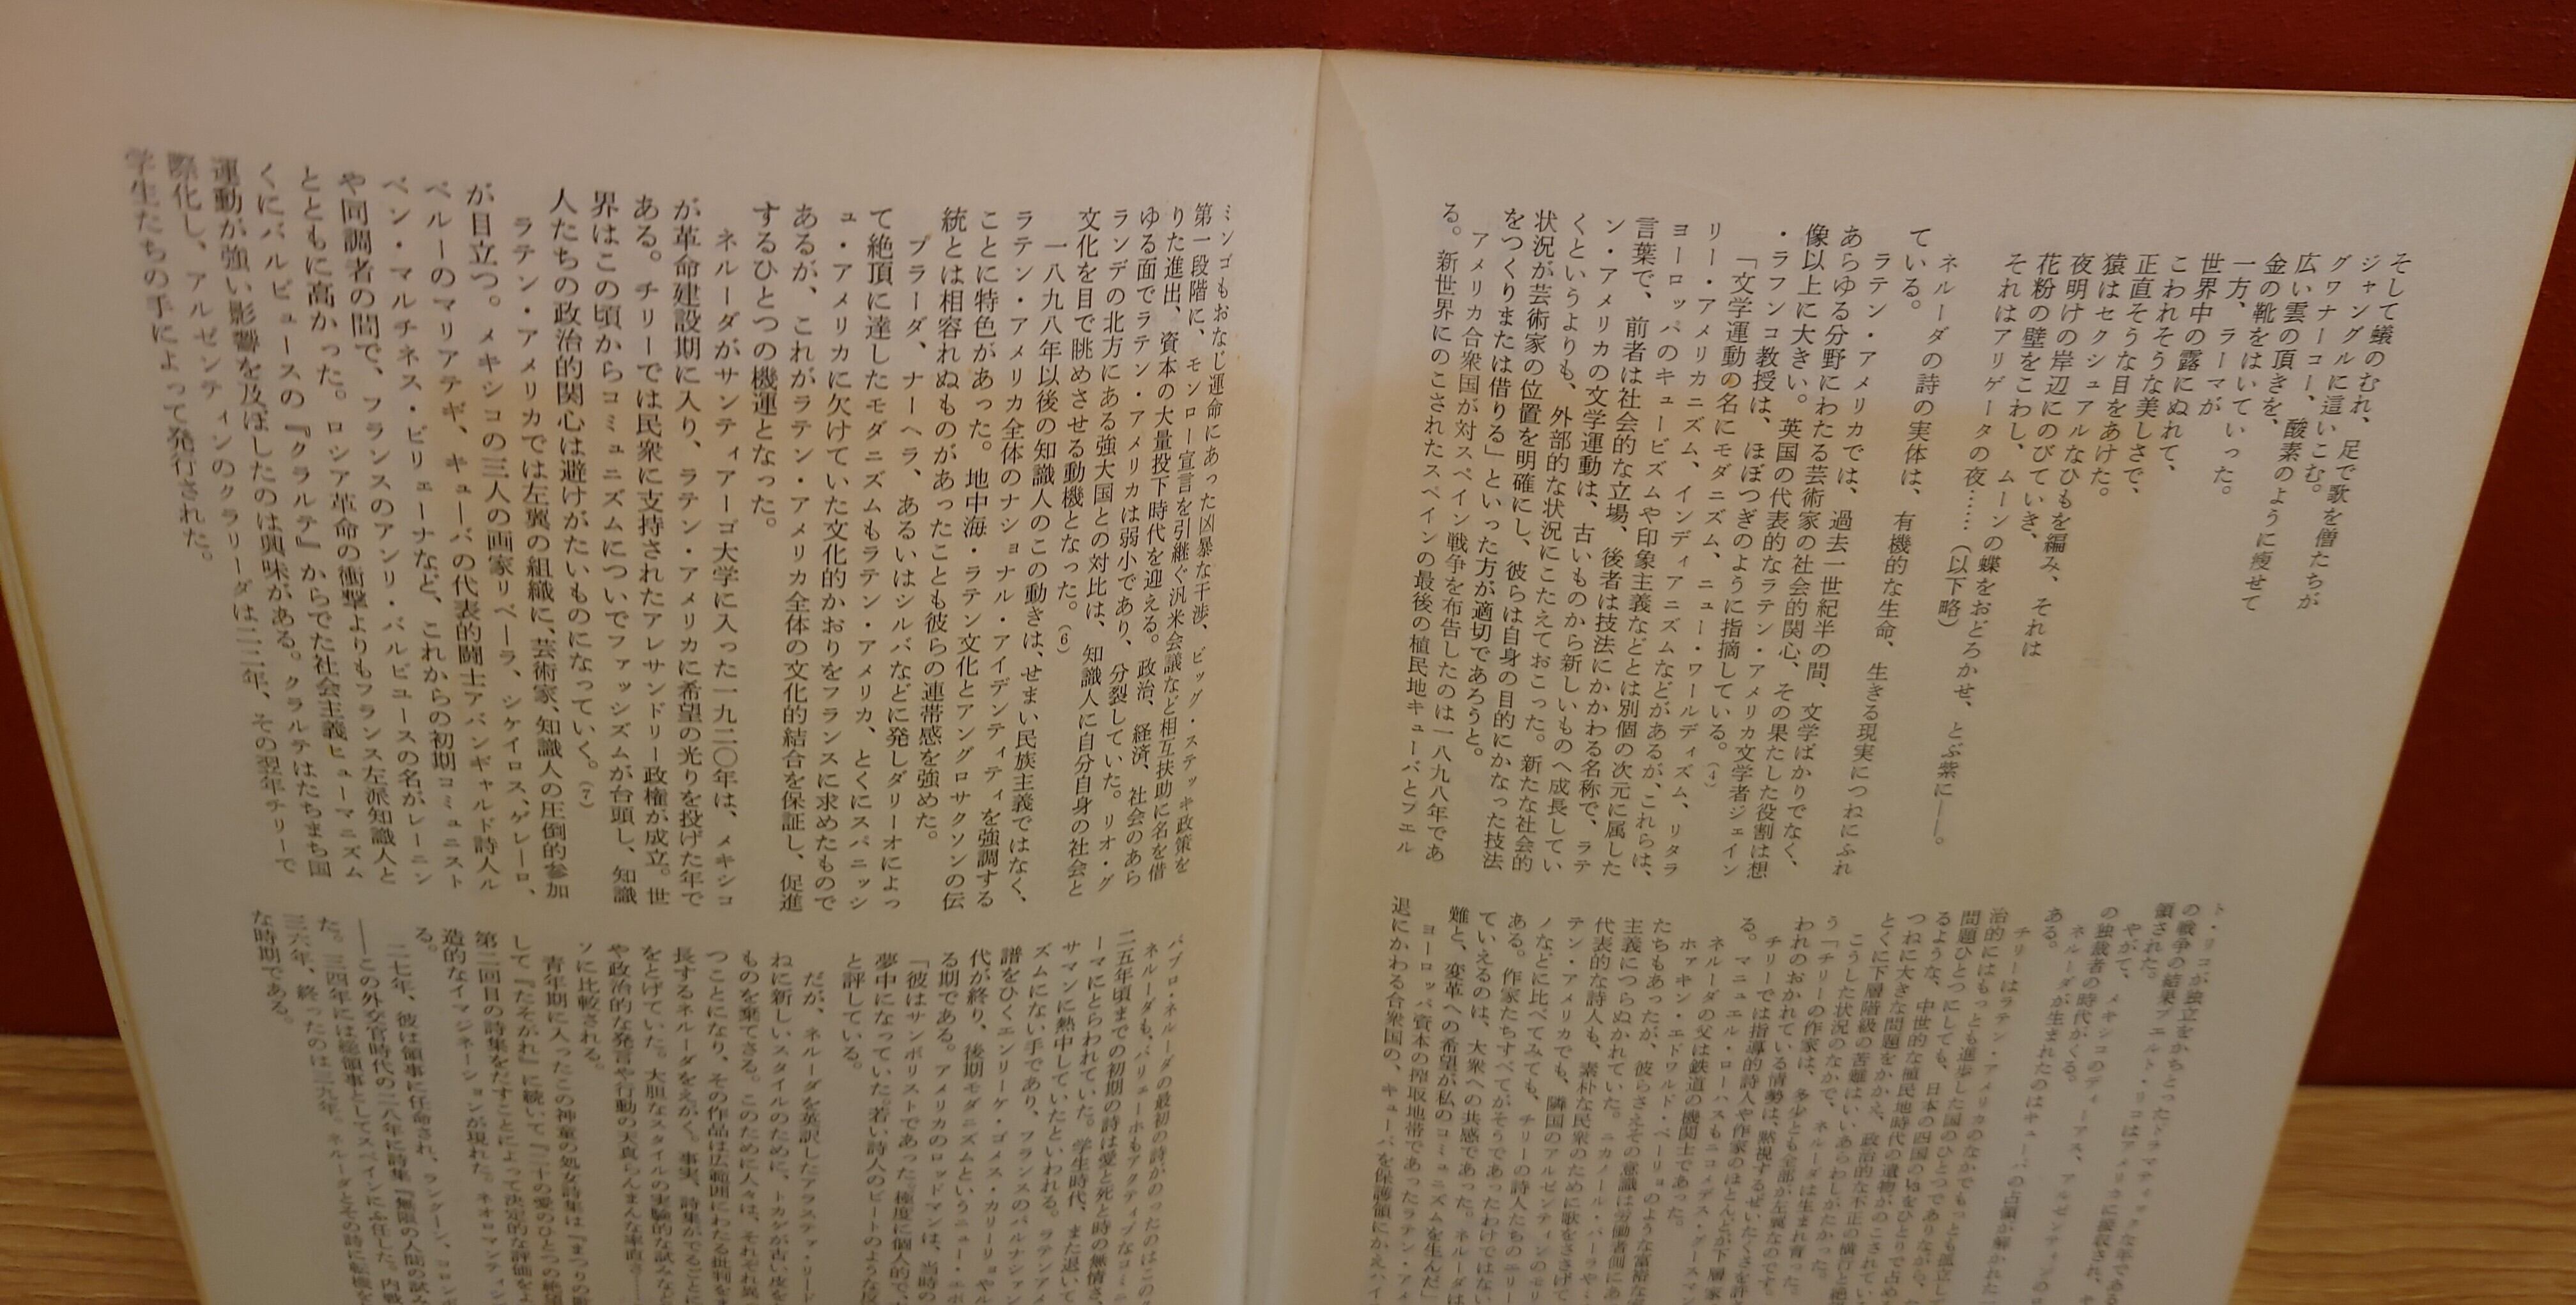 そして蟻のむれ、足で歌を僧たちが
ジャングルに這いこむ。
グワナーコー、酸素のように痩せて
広い雲の頂きを、
金の靴をはいていった。
一方、ラーマが
世界中の露にぬれて、
こわれそうな美しさで、
正直そうな目をあけた。
猿はセクシュアルなひもを編み、それは
夜明けの岸辺にのびていき、
花粉の壁をこわし、ムーンの蝶をおどろかせ、とぶ紫に――。
それはアリゲータの夜……（以下略）
ネルーダの詩の実体は、有機的な生命、生きる現実につねにふれ
ている。
ラテン・アメリカでは、過去一世紀半の間、文学ばかりでなく、
あらゆる分野にわたる芸術家の社会的関心、その果たした役割は想
像以上に大きい。英国の代表的なラテン・アメリカ文学者ジェイン
・ラフンコ教授は、ほぼつぎのように指摘している。(4)
「文学運動の名にモダニズム、ニュー・ワールディズム、リタラ
リー・アメリカニズム、インディアニズムなどがあるが、これらは、
ヨーロッパのキュービズムや印象主義などとは別個の次元に属した
言葉で、前者は社会的な立場、後者は技法にかかわる名称で、ラテ
ン・アメリカの文学運動は、古いものから新しいものへ成長してい
くというよりも、外部的な状況にこたえておこった。新たな社会的
状況が芸術家の位置を明確にし、彼らは自身の目的にかなった技法
をつくりまたは借りる」といった方が適切であろうと。
アメリカ合衆国が対スペイン戦争を布告したのは一八九八年であ
る。新世界にのこされたスペインの最後の植民地キューバとプエル
ト・リコが独立をかちとったドラマティックな年である
の戦争の結果プエルト・リコはアメリカに接収され、キ
領された。
やがて、メキシコのディーアス、アルゼンティンのロ
の独裁者の時代がくる。
ネルーダが生まれたのはキューバの占領が解かれた一
ある。
チリーはラテン・アメリカのなかでもっとも孤立して
治的にはもっとも進歩した国のひとつでありながら、
問題ひとつにしても、日本の四国の
るような、中世的な植民地時代の遺物がのこされてい
つねに大きな問題をかかえ、政治的な不正の横行と絶
とくに下層階級の苦難はいいあらわしがたかった。
こうした状況のなかで、ネルーダは生まれ育った。
う「チリーの作家は、多少とも全部が左翼なのです。
われのおかれている情勢は、黙視するぜいたくさを許
チリーでは指導的詩人や作家のほとんどが下層
る。マニュエル・ローハスもニコメデス・グースマン
ネルーダの父は鉄道の機関士であった。
ホァキン・エドワルド・ベーリョのような富裕な
たちもあったが、彼らさえその意識は労働者側にあ
主義につらぬかれていた。ニカノール・パーラやミ
代表的な詩人も、素朴な民衆のために歌をささげて
テン・アメリカでも、隣国のアルゼンティンのモリ
ノなどに比べてみても、チリーの詩人たちのエリー
ある。作家たちすべてがそうであったわけではない
ていえるのは、大衆への共感であった。ネルーダは
難と、変革への希望が私のコミュニズムを生んだ」
ヨーロッパ資本の搾取地帯であったラテン・アメ
退にかわる合衆国の、キューバを保護領にかえハイ
ミンゴもおなじ運命にあった凶暴な干渉、ビッグ・ステッキ政策を
第一段階に、モンロー宣言を引継ぐ汎米会議など相互扶助に名を借
りた進出、資本の大量投下時代を迎える。政治、経済、社会のあら
ゆる面でラテン・アメリカは弱小であり、分裂していた。リオ・グ
ランデの北方にある強大国との対比は、知識人に自分自身の社会と
文化を目で眺めさせる動機となった。(6)
一八九八年以後の知識人のこの動きは、せまい民族主義ではなく、
ラテン・アメリカ全体のナショナル・アイデンティティを強調する
ことに特色があった。地中海・ラテン文化とアングロサクソンの伝
統とは相容れぬものがあったことも彼らの連帯感を強めた。
プラーダ、ナーヘラ、あるいはシルバなどに発しダリーオによっ
て絶頂に達したモダニズムもラテン・アメリカ、とくにスパニッシ
ュ・アメリカに欠けていた文化的かおりをフランスに求めたもので
あるが、これがラテン・アメリカ全体の文化的結合を保証し、促進
するひとつの機運となった。
ネルーダがサンティアーゴ大学に入った一九二〇年は、メキシコ
が革命建設期に入り、ラテン・アメリカに希望の光りを投げた年で
ある。チリーでは民衆に支持されたアレサンドリー政権が成立。世
界はこの頃からコミュニズムについでファッシズムが台頭し、知識
人たちの政治的関心は避けがたいものになっていく。(7)
ラテン・アメリカでは左翼の組織に、芸術家、知識人の圧倒的参加
が目立つ。メキシコの三人の画家リベーラ、シケイロス、ゲレーロ、
ペルーのマリアテギ、キューバの代表的闘士アバンギャルド詩人ル
ベン・マルチネス・ビリェーナなど、これからの初期コミュニスト
や同調者の間で、フランスのアンリ・バルビュースの名がレーニン
とともに高かった。ロシア革命の衝撃よりもフランス左派知識人と
くにバルビュースの『クラルテ』からでた社会主義ヒューマニズム
運動が強い影響を及ぼしたのは興味がある。クラルテはたちまち国
際化し、アルゼンティンのクラリーダは二二年、その翌年チリーで
学生たちの手によって発行された。
パブロ・ネルーダの最初の詩がのったのはこの
ネルーダも、バリェーホもアクティブなコミニ
二五年頃までの初期の詩は愛と死と時の無情さ、
ーマにとらわれていた。学生時代、また退いて
サマンに熱中していたといわれる。ラテンアメ
ズムにない手であり、フランスのパルナシァン
譜をひくエンリーケ・ゴメス・カリーリョやル
代が終り、後期モダニズムというニュー・エポ
る期である。アメリカのロッドマンは、当時の
「彼はサンボリストであった。極度に個人的で、
夢中になっていた。若い詩人のビートのような反
と評している。
だが、ネルーダを英訳したアラステァ・リード
ねに新しいスタイルのために、トカゲが古い皮を
ものを棄てさる。このために人々は、それぞれ異っ
つことになり、その作品は広範囲にわたる批判をま
長するネルーダをえがく。事実、詩集がでるごとに
をとげていた。大胆なスタイルの実験的な試みなど
や政治的な発言や行動の天真らんまんな率直さ……
ソに比較される。
青年期に入ったこの神童の処女詩集は『まつりの歌
して『たそがれ』に続いて『二十の愛のひとつの絶望
第二回目の詩集をだすことによって決定的な評価をよ
造的なイマジネーションが現れた。ネオロマンティシ
る。
二七年、彼は領事に任命され、ラングーン、コロンボ
――この外交官時代の二八年に詩集『無限の人間の試み
た。三四年には総領事としてスペインに赴任した。内戦
三六年、終ったのは三九年。ネルーダとその詩に転機を
な時期である。